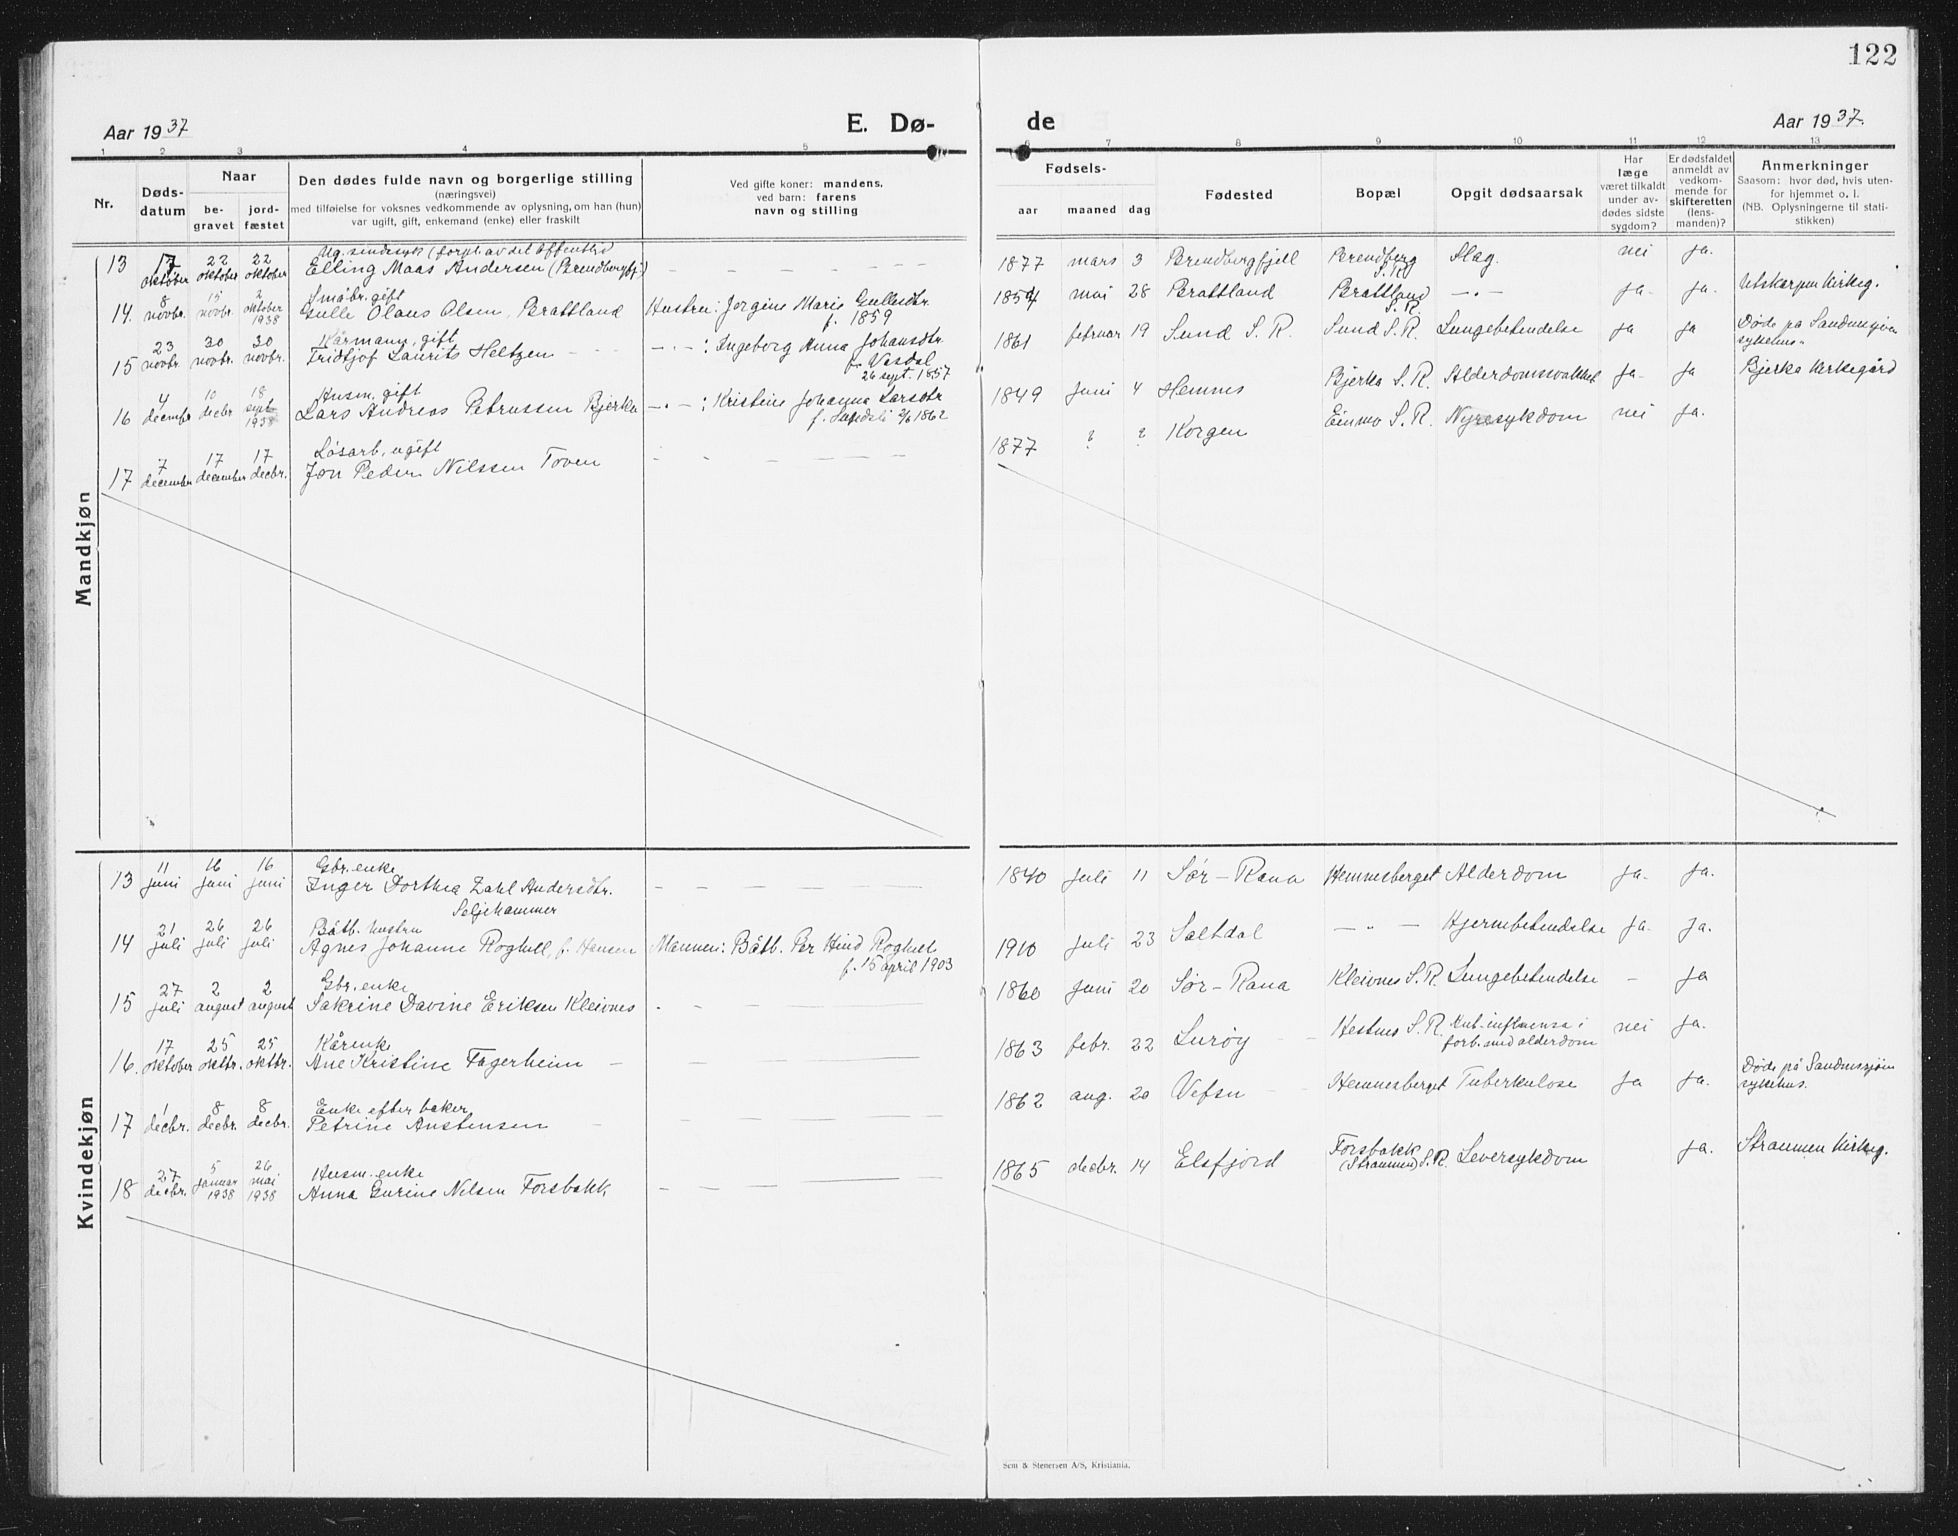 122
Aar 1937
E. Dø-
de
Aar 1937.
1 2 3 4 5
6 7 8 9 10 11 12 13
Nr.
Døds-
datum
Naar
be-
gravet
jord-
fæstet
Den dødes fulde navn og borgerlige stilling
(næringsvei)
med tilføielse for voksnes vedkommende av oplysning, om han (hun)
var ugift, gift, enkemand (enke) eller fraskilt
Ved gifte koner: mandens,
ved barn: farens
navn og stilling
Fødsels-
aar maaned dag
Fødested
Bopæl
Opgit dødsaarsak
Har
læge
været tilkaldt
under av-
dødes sidste
sygdom?
Er dødsfaldet
anmeldt av
vedkom-
mende for
skifteretten
(lens-
manden)?
Anmerkninger
Saasom: hvor død, hvis uten-
for hjemmet o. l.
(NB. Oplysningerne til stati-
stikken)
Mandkjøn
Ug. sindssyk (forpl. av det offentlig
13 17 oktober 22 oktober 22 oktober Elling Maas Andersen (Brendbergfj.) — — — — — — 1877 mars 3 Brendbergfjell Brendberg S.R. Slag. nei ja.
Småbr. gift
14. 8 novbr. 15 novbr. 2 oktober 1938 Gulle Olaus Olsen, Brattland Hustru: Jorgine Marie Gullesdtr. f. 1859 1854 mai 28 Brattland Brattland S.R. —„— ja. ja. Utskarpen Kirkeg.
Kårmann, gift
15 23 novbr. 30 novbr. 30 novbr. Fridtjof Laurits Heltzen — — —„—: Ingeborg Anna Johansdtr. f. Vasdal 26 sept. 1857 1861 februar 19 Sund S.R. Sund S.R. Lungebetendelse ja ja Døde på Sandnessjøen sykehus.
Husm. gift
16 4 decembr 10 decbr 18 septr 1938 Lars Andreas Petrussen Bjerka —„—: Kristine Johanna Larsdtr 1862 1849 juni 4 Hemnes Bjerka S.R. Alderdomssvakhet ja. ja Bjerka Kirkegård
Løsarb., ugift
17 7 december 17 december 17 decbr. Jon Peder Nilssen Toven — — — — — — 1877 ? ? Korgen Einmo S.R. Nyresykdom nei ja.
Kvindekjøn
Gbr. enke
13 11 juni 16 juni 16 juni Inger Dorthea Zahl Andersdtr. Seljehammer — — — — — 1840 juli 11 Sør-Rana Hemnesberget Alderdom ja. ja.
Båtb. hustru
14 21 juli 26 juli 26 juli Agnes Johanne Roghell, f. Hansen Mannen: Båtb. Per Hind Roghell f. 15 april 1903 1910 juli 23 Saltdal —„— Hjernbetendelse ja. ja.
Gbr. enke
15 27 juli 2 august 2 august Sakrine Davine Eriksen Kleivnes — — — — 1860 juni 20 Sør-Rana Kleivnes S.R. Lungebetendelse — ja
Kårenke
16. 17 oktober 25 oktbr. 25 oktbr. Ane Kristine Fagerheim — — — — 1863 febr. 22 Lurøy Hestnes S.R. influensa i forb. med alderdom nei ja.
Enke efter baker
17 1 decbr. 8 decbr. 8 decbr. Petrine Austensen — — — — 1862 aug. 20 Vefsn Hemnesberget Tuberkulose ja ja. Døde på Sandnessjøen sykehus.
Husm. enke
18 27 decbr. 5 januar 1938 26 mai 1938 Anna Gurine Nilsen Forsbakk — — — — 1865 decbr. 14 Elsfjord Forsbakk (Straumen) S.R. Leversykdom ja. Straumen Kirkeg.
Sem & Stenersen A/S, Kristiania.